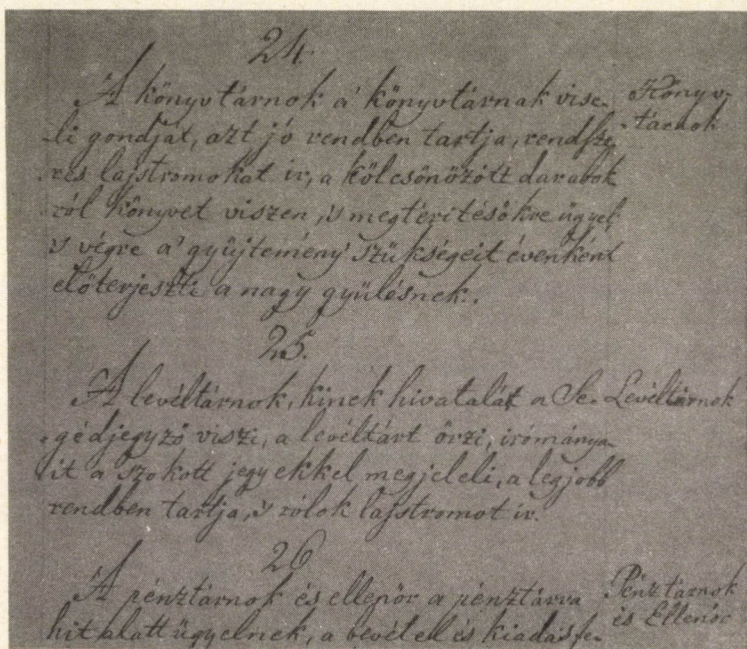 24.
A könyvtárnok a' könyvtárnak vise- Könyv-
li gondját, azt jó rendben tartja, rendsze- tárnok
res lajstromokat ir, a kölcsönözött darabok
ról könyvet viszen, 's megtérítésökre ügyel,
's végre a' gyüjtemény' szükségeit évenként
előterjeszti a nagy gyülésnek.
25.
A levéltárnok, kinek hivatalát a Se- Levéltárnok
gédjegyző viszi, a levéltárt őrzi, irománya-
it a szokott jegyekkel megjeleli, a legjobb
rendben tartja, 's rólok lajstromot ir.
26
A pénztárnok és ellenőr a pénztárra Pénztárnok
hit alatt ügyelnek, a bevétel és kiadás fe- és Ellenőr